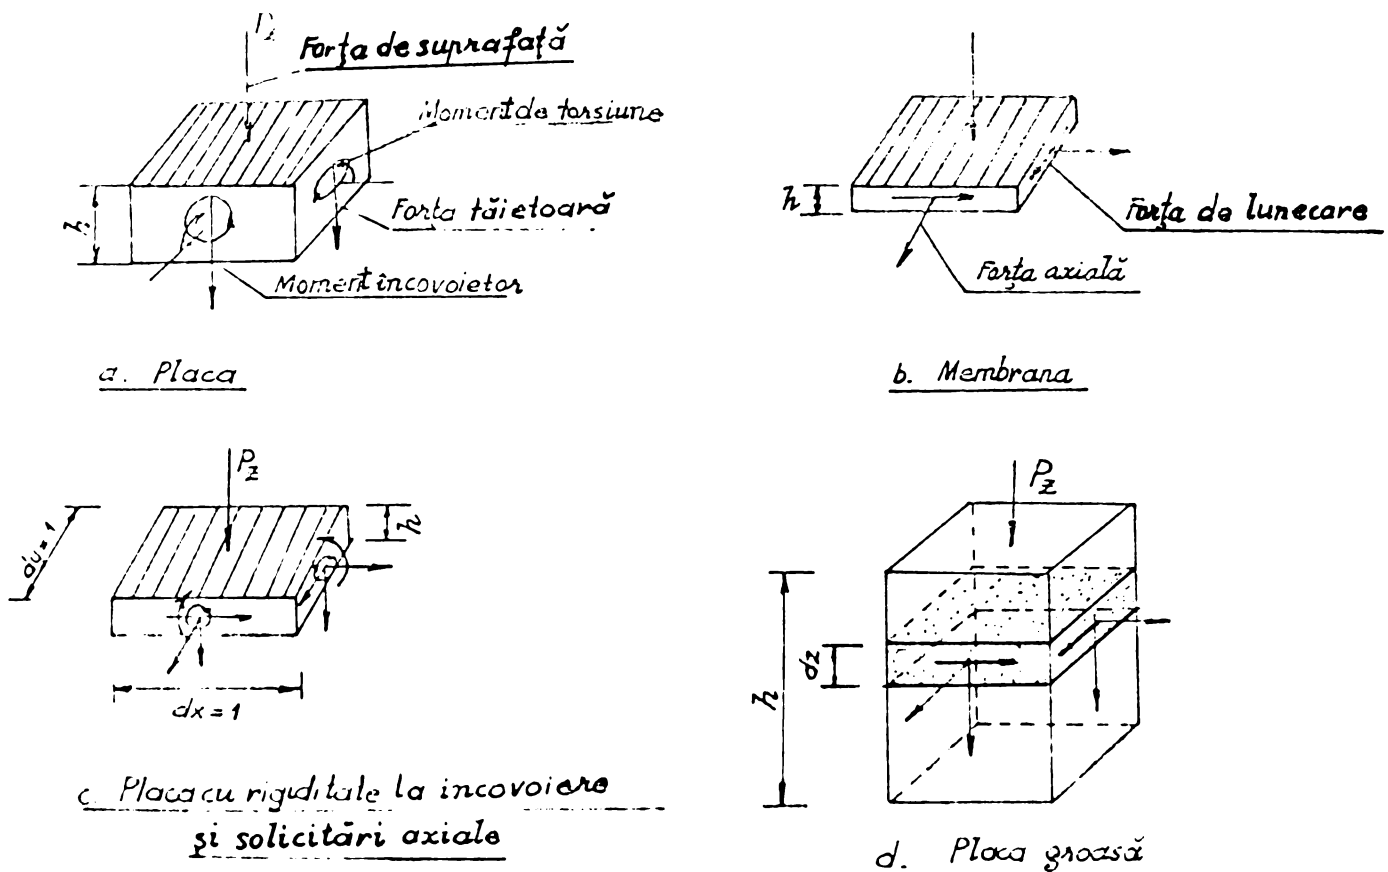 Forţa de suprafaţă
Moment de torsiune
h
Forta tăietoară
Moment încovoietor
a. Placa
h
Forţa de lunecare
Forţa axială
b. Membrana
Pz
dy = 1
h
dx = 1
c. Placa cu rigiditate la incovoiere
şi solicitări axiale
Pz
dz
h
d. Placa groasă